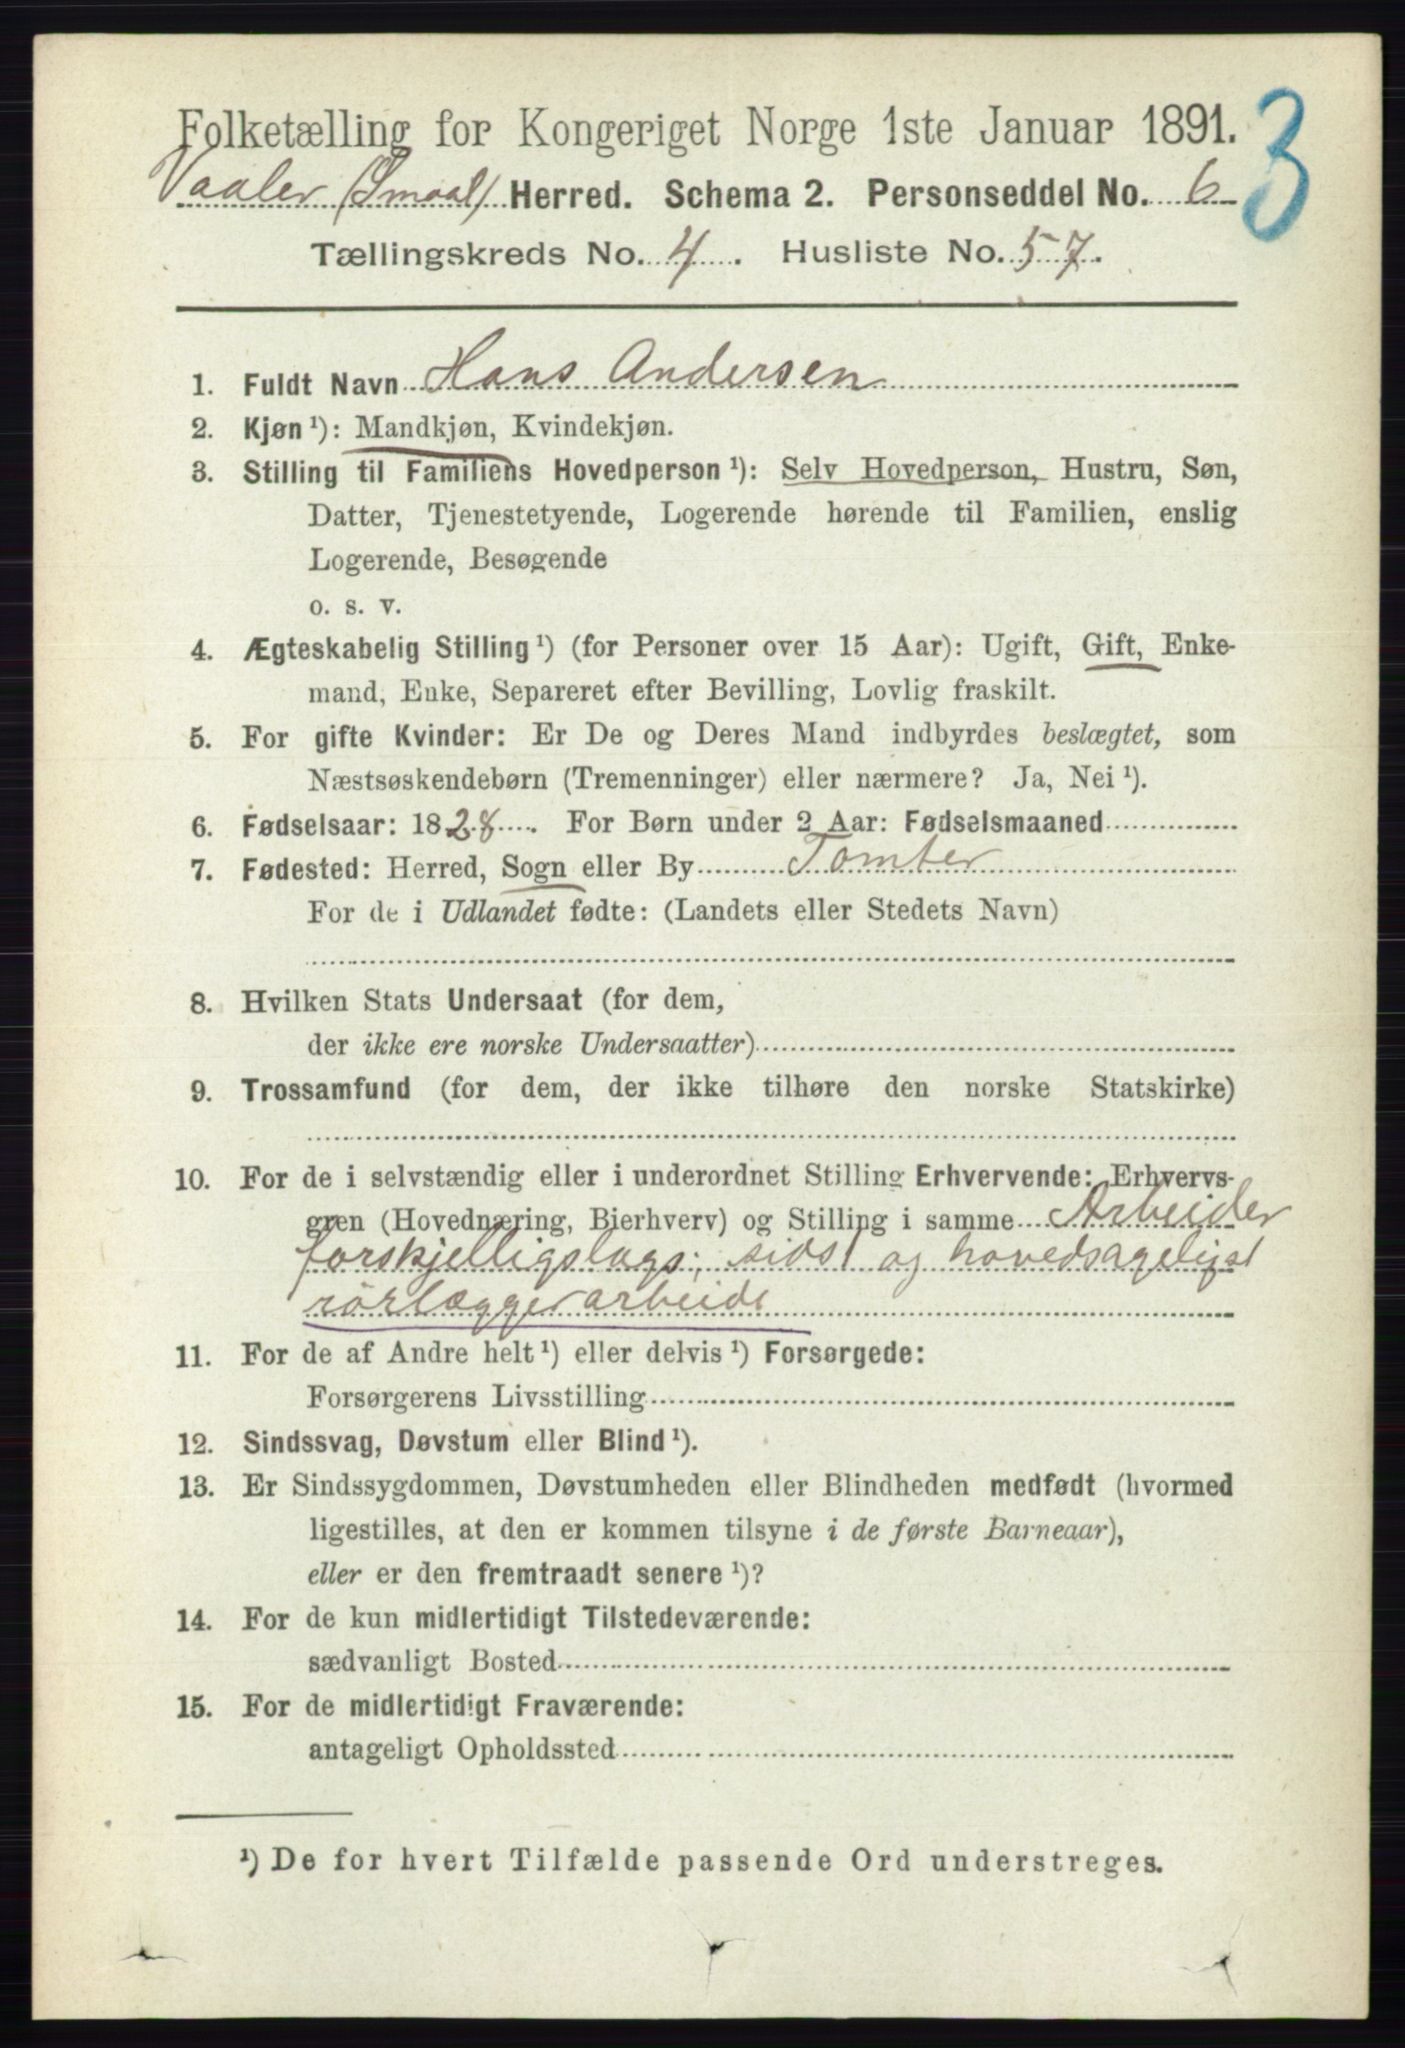 Folketælling for Kongeriget Norge 1ste Januar 1891. 3
Vaaler (Smaal) Herred. Schema 2. Personseddel No. 6
Tællingskreds No. 4. Husliste No. 57.
1. Fuldt Navn Hans Andersen
2. Kjøn ¹): Mandkjøn, Kvindekjøn.
3. Stilling til Familiens Hovedperson ¹): Selv Hovedperson, Hustru, Søn,
Datter, Tjenestetyende, Logerende hørende til Familien, enslig
Logerende, Besøgende
o. s. v.
4. Ægteskabelig Stilling ¹) (for Personer over 15 Aar): Ugift, Gift, Enke-
mand, Enke, Separeret efter Bevilling, Lovlig fraskilt.
5. For gifte Kvinder: Er De og Deres Mand indbyrdes beslægtet, som
Næstsøskendebørn (Tremenninger) eller nærmere? Ja, Nei ¹).
6. Fødselsaar: 1828. For Børn under 2 Aar: Fødselsmaaned
7. Fødested: Herred, Sogn eller By Tomter
For de i Udlandet fødte: (Landets eller Stedets Navn)
8. Hvilken Stats Undersaat (for dem,
der ikke ere norske Undersaatter)
9. Trossamfund (for dem, der ikke tilhøre den norske Statskirke)
10. For de i selvstændig eller i underordnet Stilling Erhvervende: Erhvervs-
gren (Hovednæring, Bierhverv) og Stilling i samme Arbeider
forskjelligslags; sidst og hovedsageligst
rørlæggerarbeide
11. For de af Andre helt ¹) eller delvis ¹) Forsørgede:
Forsørgerens Livsstilling
12. Sindssvag, Døvstum eller Blind ¹).
13. Er Sindssygdommen, Døvstumheden eller Blindheden medfødt (hvormed
ligestilles, at den er kommen tilsyne i de første Barneaar),
eller er den fremtraadt senere ¹)?
14. For de kun midlertidigt Tilstedeværende:
sædvanligt Bosted
15. For de midlertidigt Fraværende:
antageligt Opholdssted
¹) De for hvert Tilfælde passende Ord understreges.